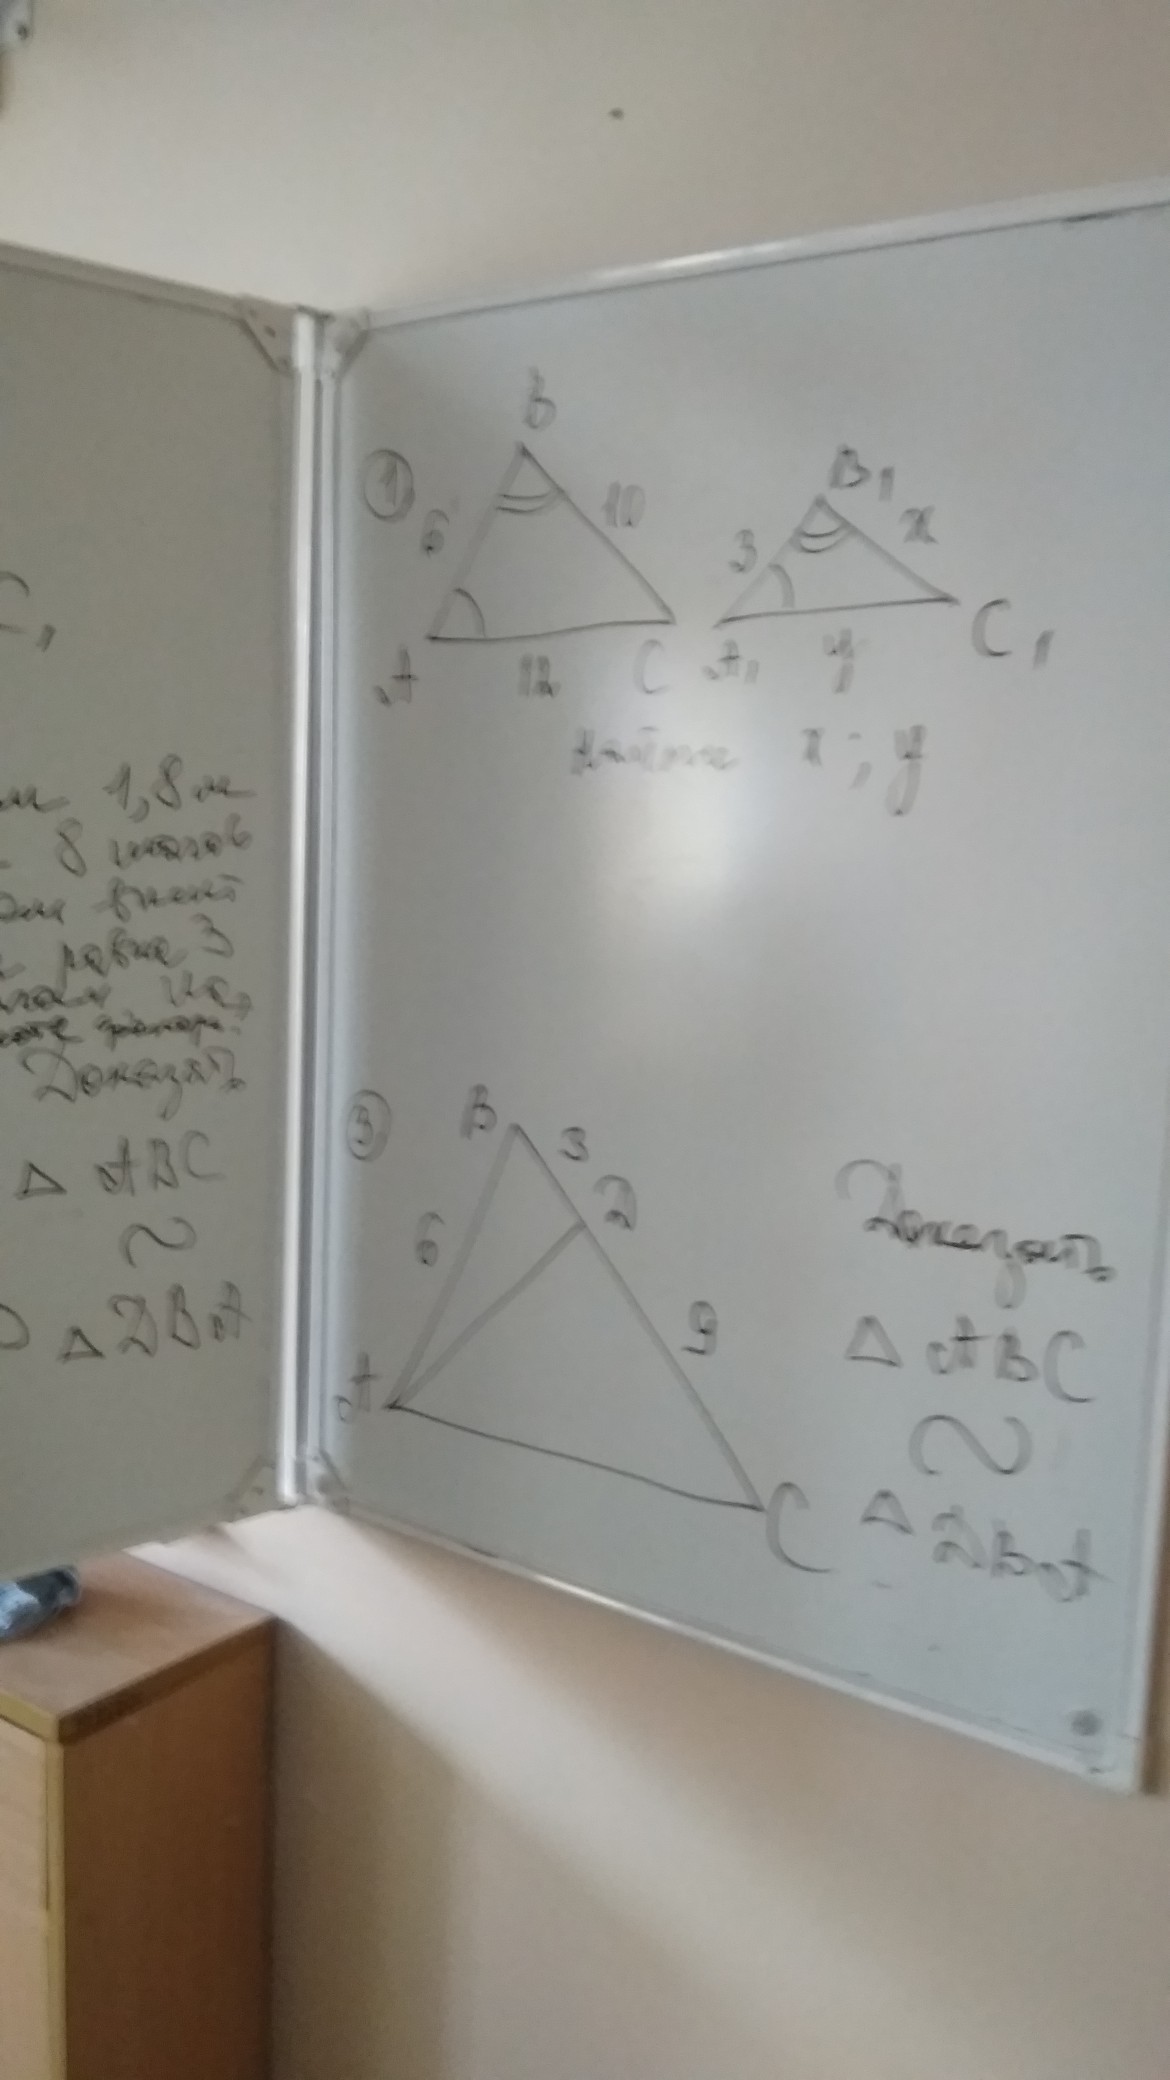 1,8 м
8 шагов
равна 3
Доказать
△ ABC
∾
△ DBA
①
B
6
10
A
12
C
B₁
3
x
A₁
y
C₁
Найти x; y
③
B
3
D
6
9
A
C
Доказать
△ ABC
∾
△ DBA